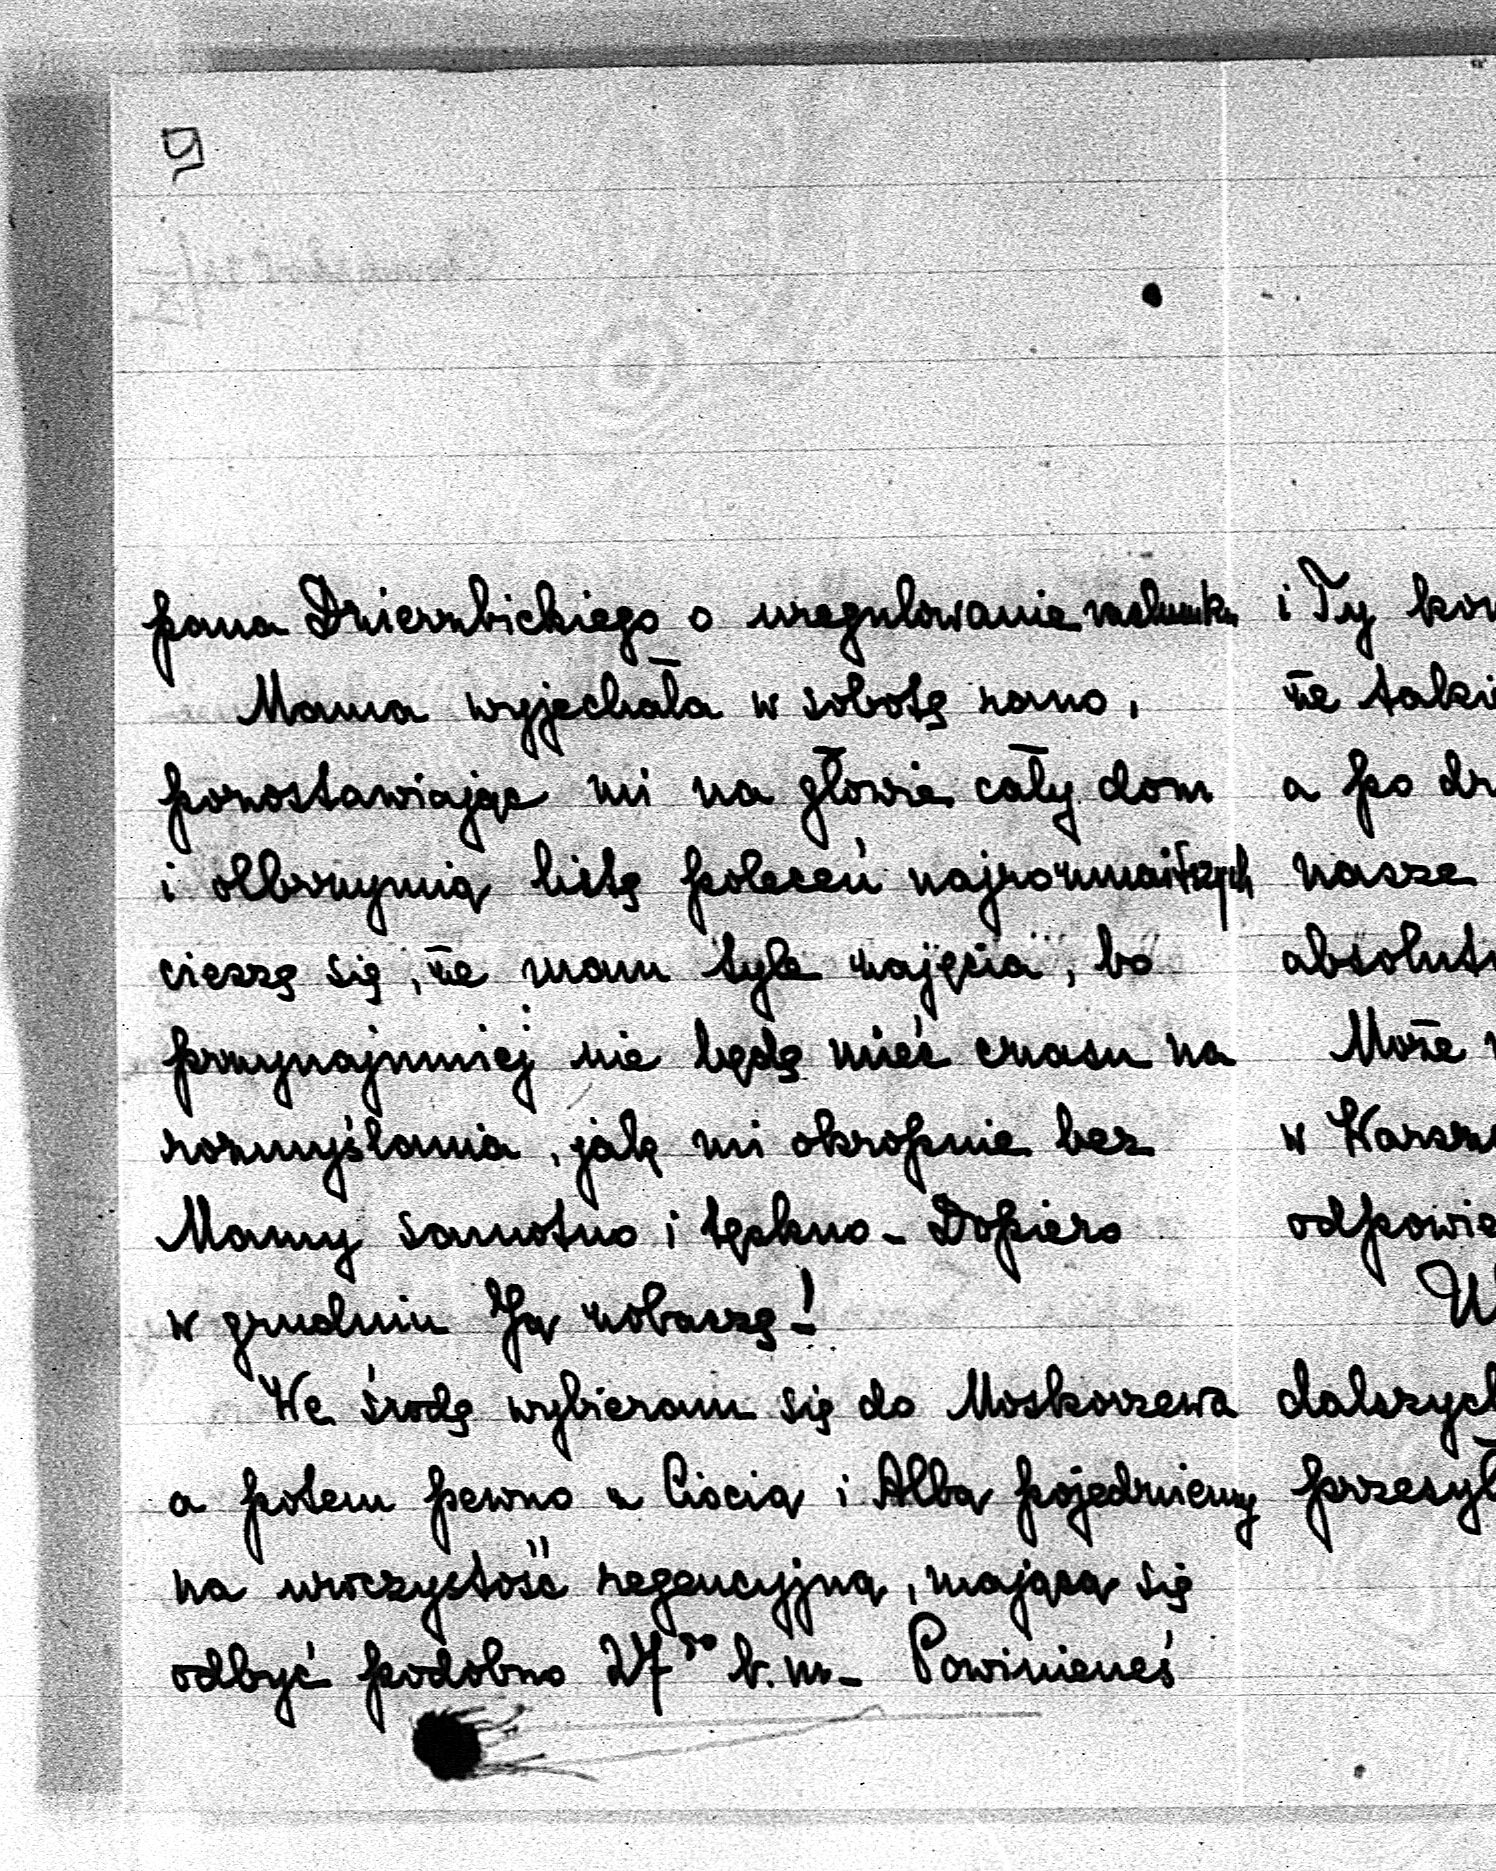 pana Dzierzbickiego o uregulowanie rachunku
Mama wyjechała w sobotę rano,
pozostawiając mi na głowie cały dom
i olbrzymią listę poleceń najrozmaitszych
cieszę się, że mam tyle zajęcia, bo
przynajmniej nie będę mieć czasu na
rozmyślania, jak mi okropnie bez
Mamy samotno i tęskno – Dopiero
w grudniu Ją zobaczę!
We środę wybieram się do Moskorzewa
a potem pewno z Ciocią i Albą pojedziemy
na uroczystość regencyjną, mającą się
odbyć podobno 27go b.m. – Powinieneś
i Ty kor
że takie
a po dr
nasze
absolutn
Może
w Warsz
odpowie
dalszych
przesył